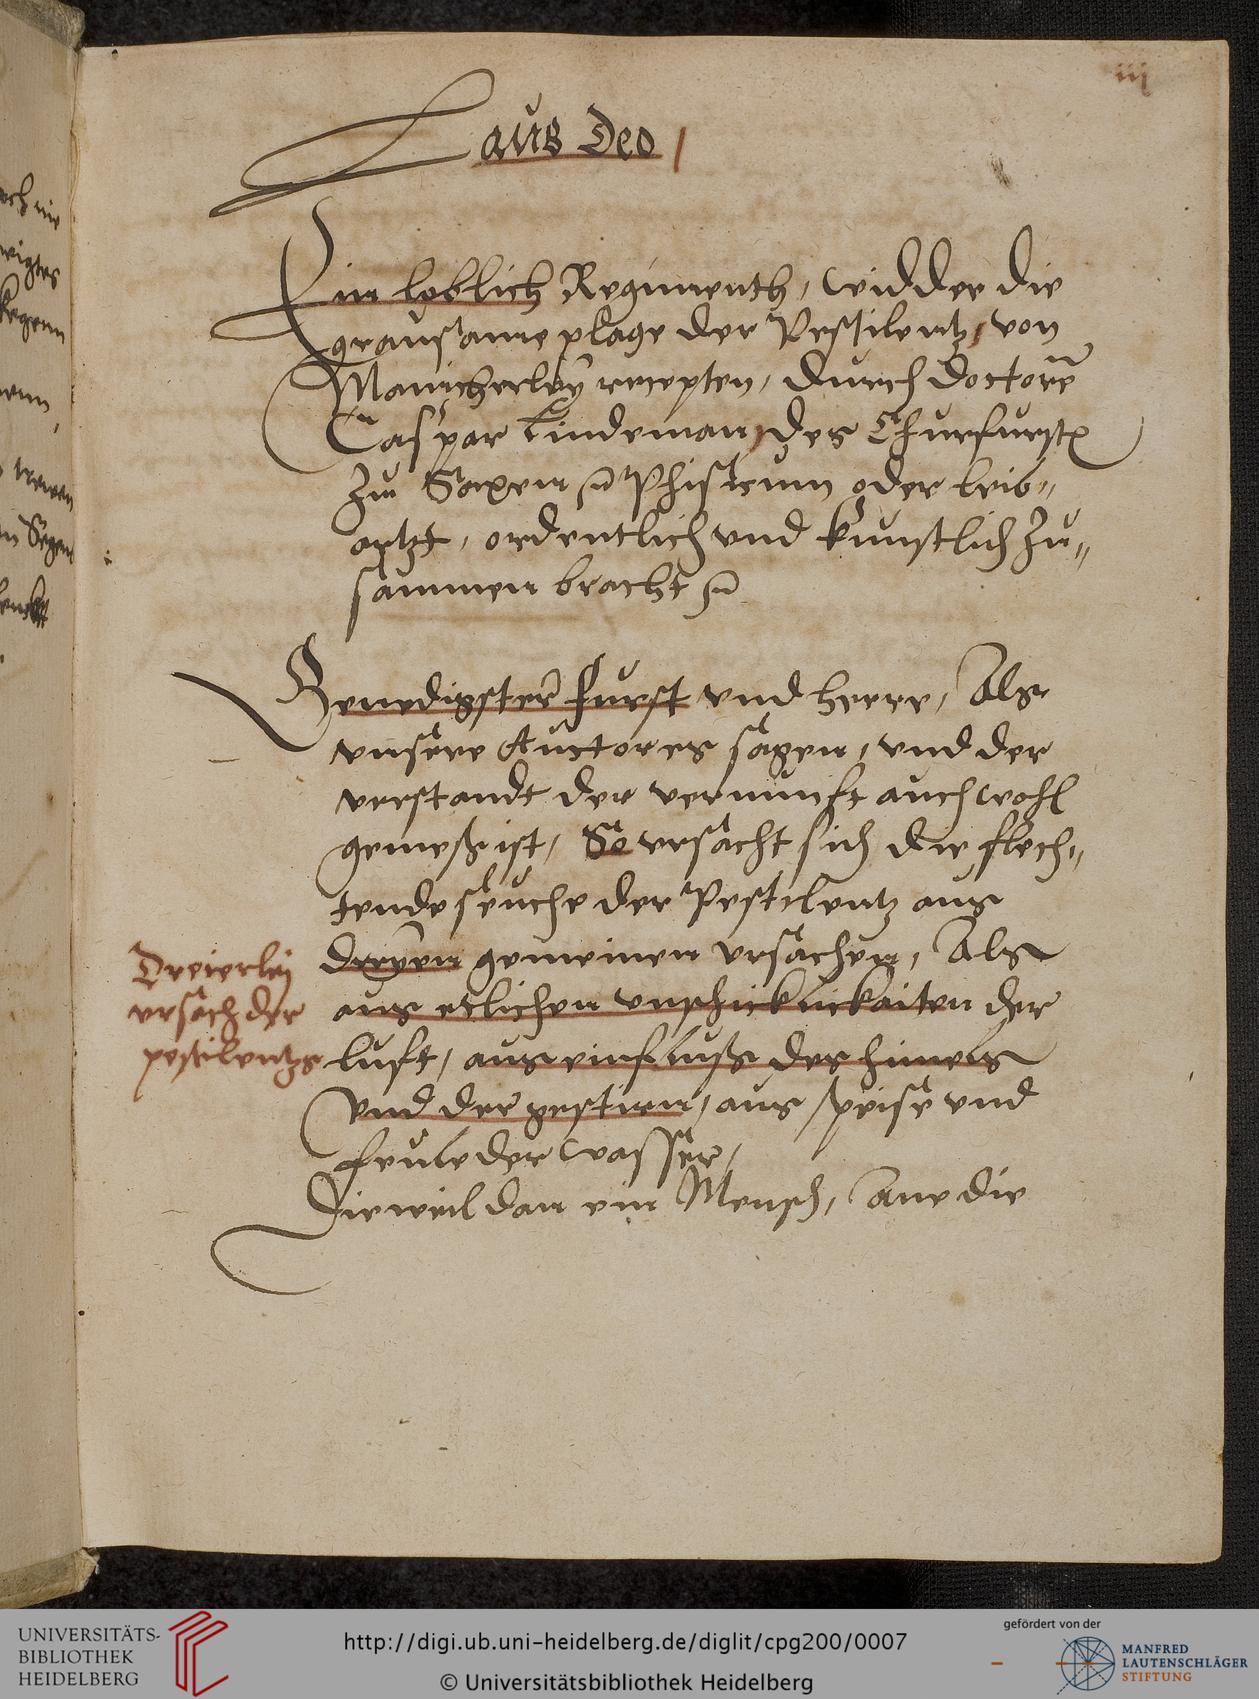 iij
Laus Deo /
Ein loblich Regimenth, widder die
grausame plage der Pestilentz, von
Manicherley recepten, durch doctore
Caspar Lindeman, des Churfurst
zw Saxen Phisicum oder leib„
artzt, ordentlich vnd kunstlich zu„
samen bracht
Genedigster Furst vnd herre, Als
vnsere Auctores sagen, vnd der
verstandt der vernunfft auch wohl
gemeß ist, So vrsacht sich die flech„
tende seuche der Pestilentz aus
dreyen gemeinen vrsachen, Als
aus etlichen vnschicklickaiten der
luft, aus einfluß des himels
vnd der gestirn, aus speise vnd
feule der wasser,
Dieweil dan ein Mensch, Ane die
Dreierlei
vrsach der
pestilentz
UNIVERSITÄTS-
BIBLIOTHEK
HEIDELBERG
http://digi.ub.uni-heidelberg.de/diglit/cpg200/0007
© Universitätsbibliothek Heidelberg
gefördert von der
MANFRED
LAUTENSCHLÄGER
STIFTUNG